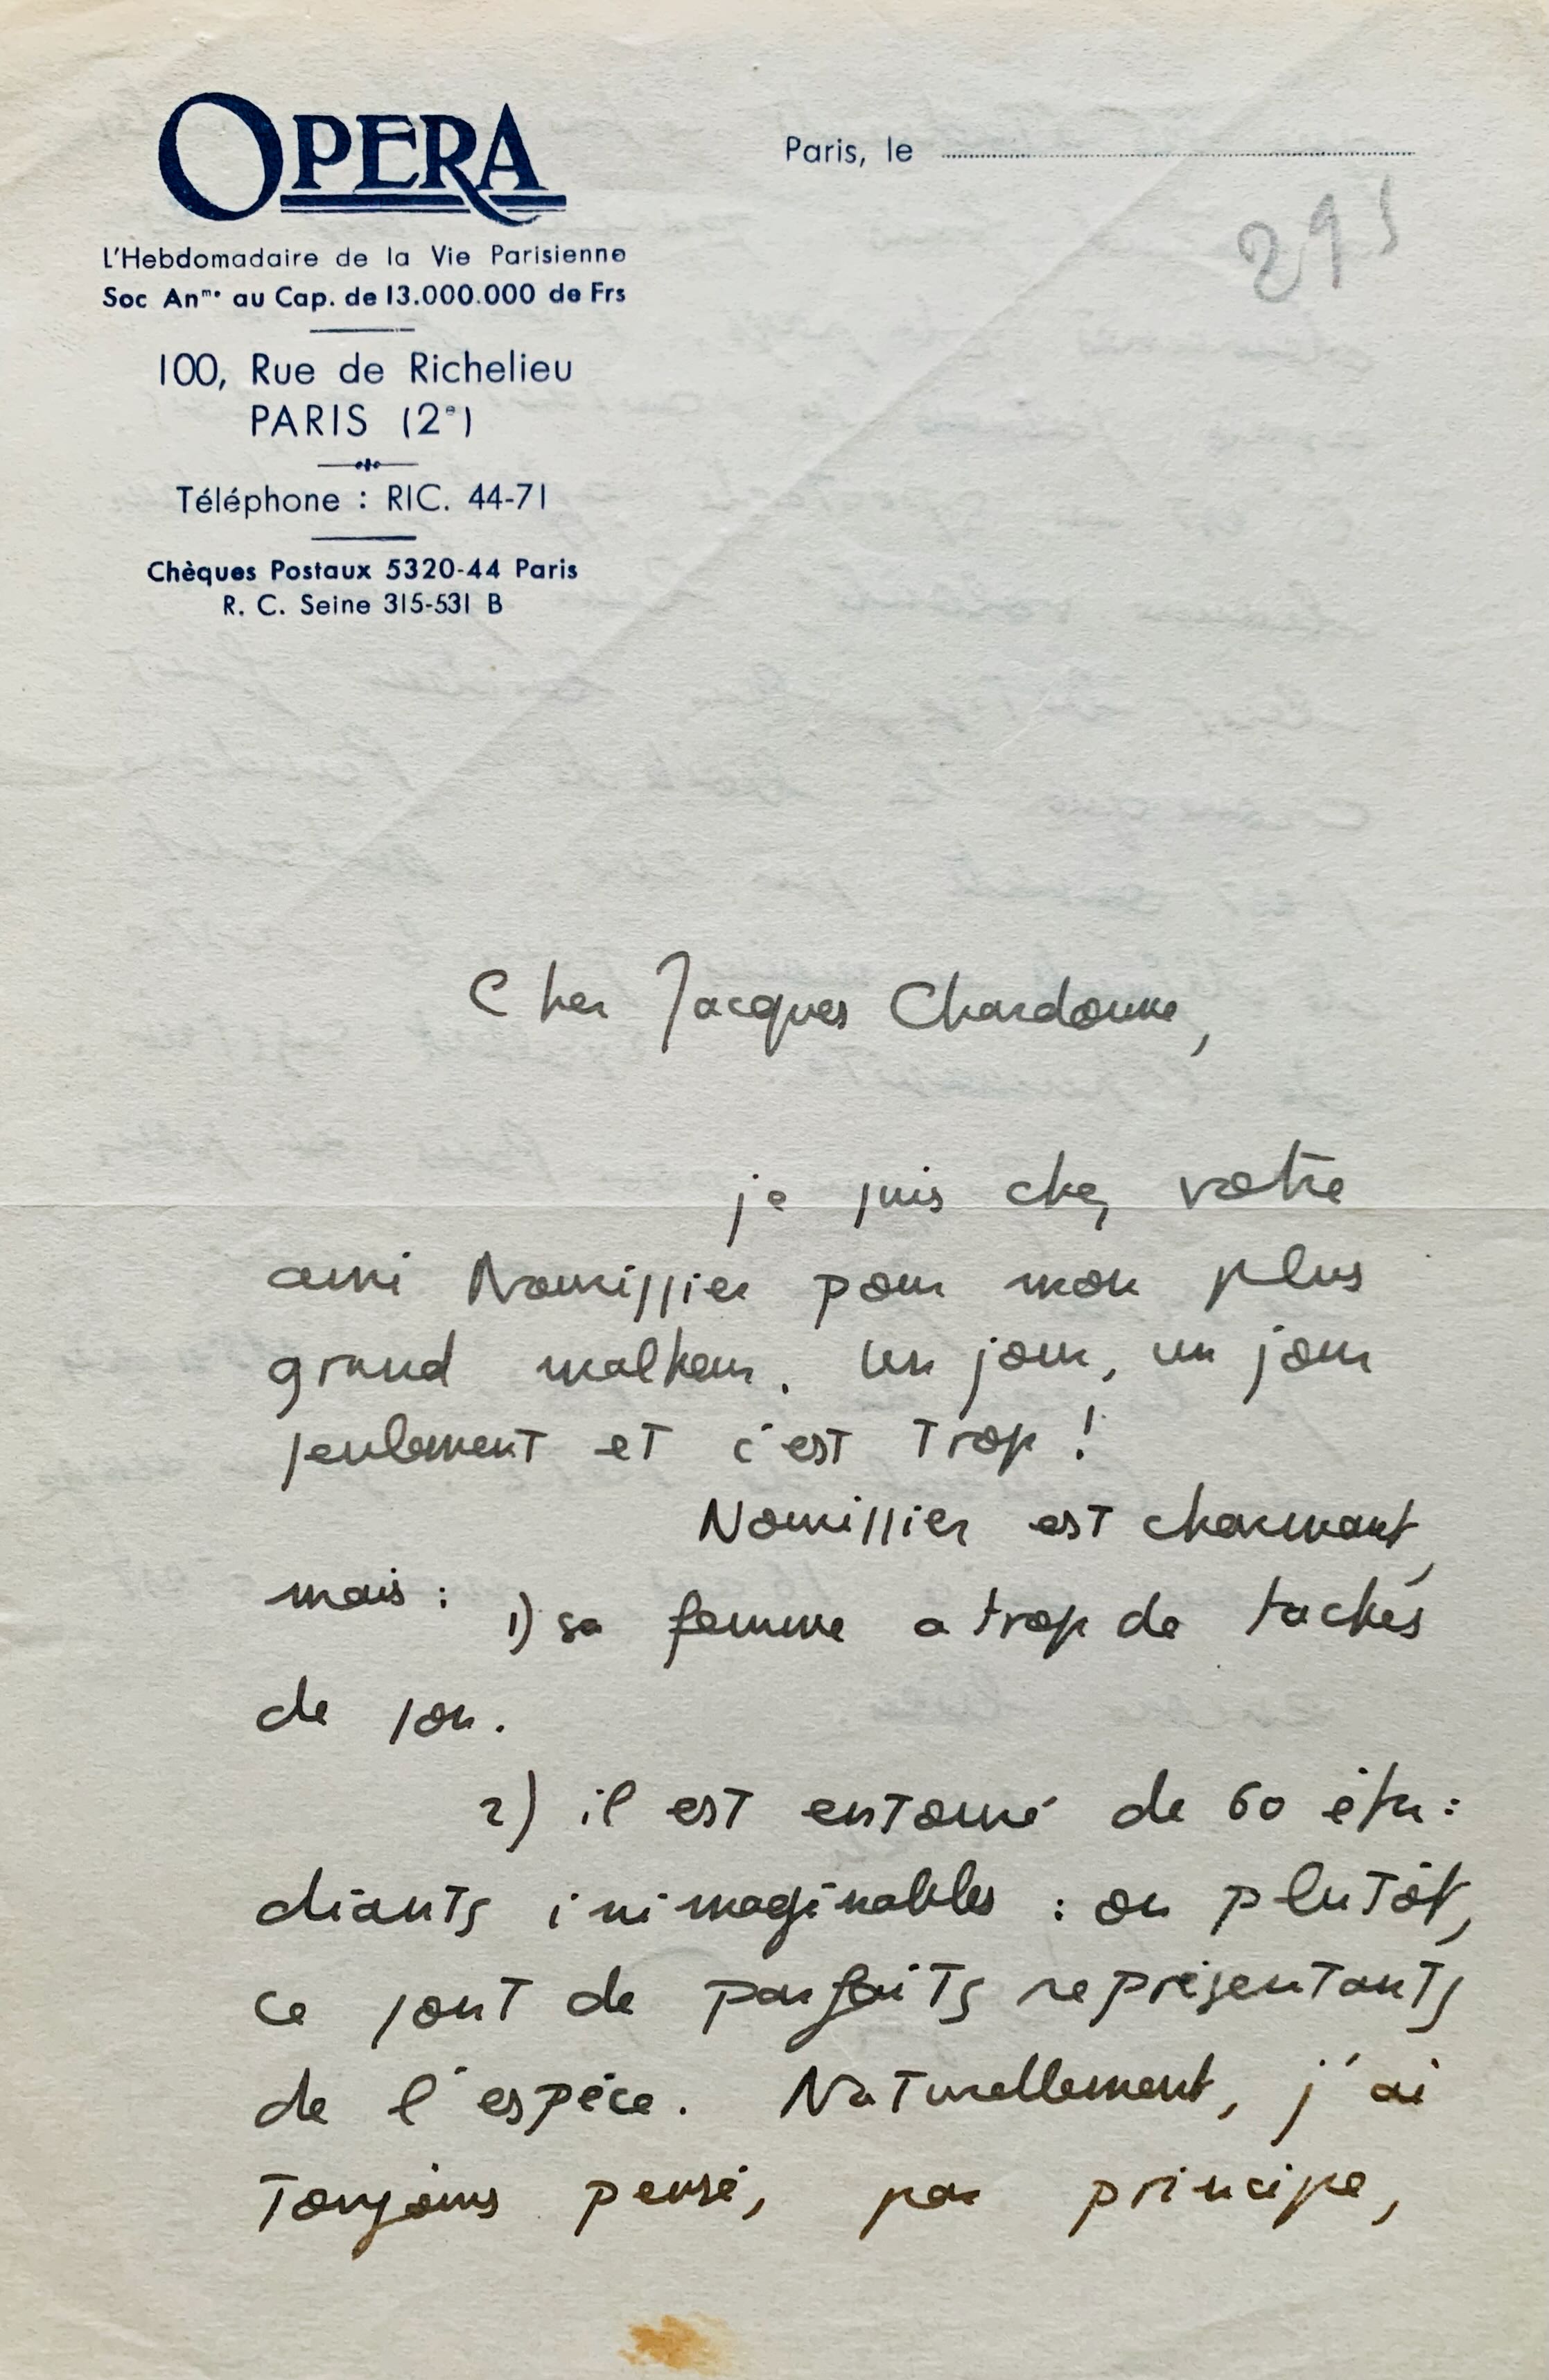 OPERA
Paris, le
L'Hebdomadaire de la Vie Parisienne
Soc Anme au Cap. de 13.000.000 de Frs
100, Rue de Richelieu
PARIS (2e)
Téléphone : RIC. 44-71
Chèques Postaux 5320-44 Paris
R. C. Seine 315-531 B
Cher Jacques Chardonne,
je suis chez votre
ami Nourissier pour mon plus
grand malheur. Un jour, un jour
seulement et c'est trop !
Nourissier est charmant,
mais : 1) sa femme a trop de taches
de son.
2) il est entouré de 60 étu:
diants inimaginables : ou plutôt,
ce sont de parfaits représentants
de l'espèce. Naturellement, j'ai
toujours pensé, par principe,